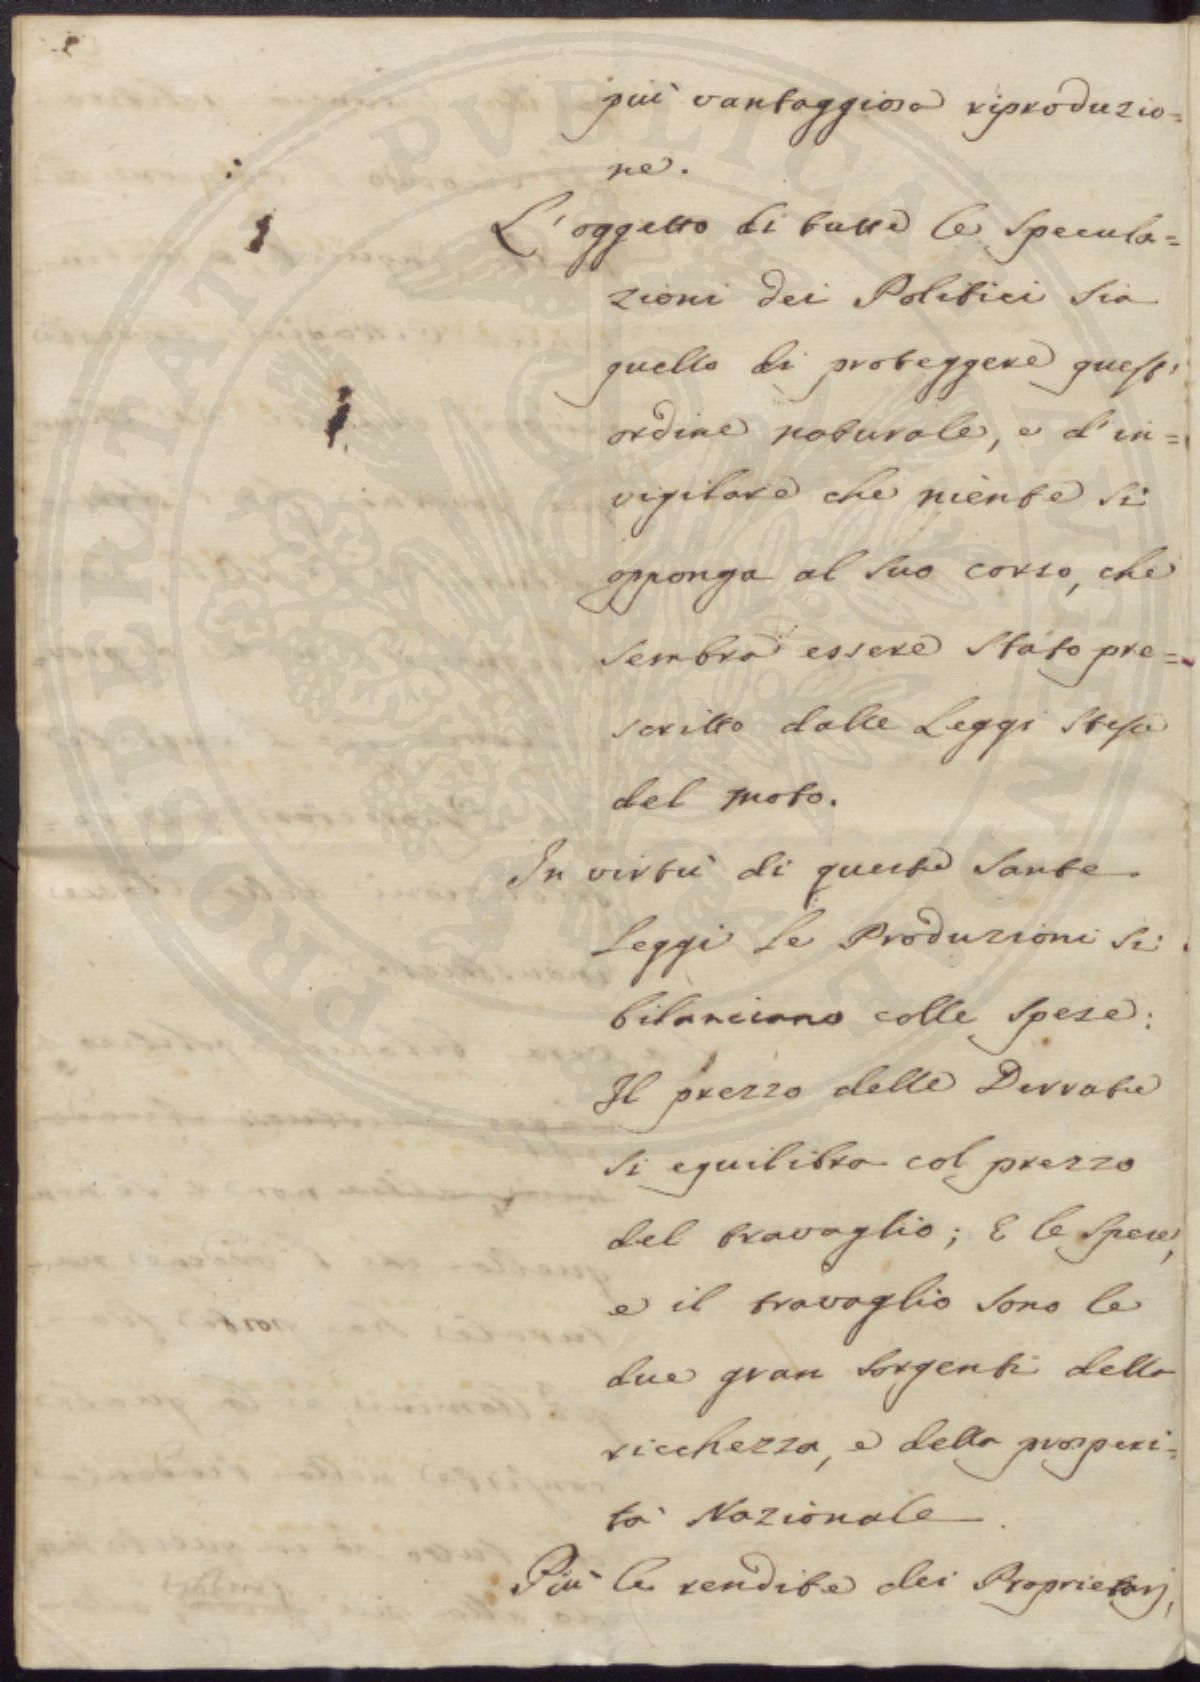 più vantaggiosa riproduzio=
ne.
L'oggetto di tutte le specula=
zioni dei Politici sia
quello di proteggere quest'
ordine naturale, e d'in=
vigilare che niente si
opponga al suo corso, che
sembra essere stato pre=
scritto dalle Leggi stesse
del moto.
In virtù di queste sante
Leggi le Produzioni si
bilanciano colle spese:
Il prezzo delle Derrate
si equilibra col prezzo
del travaglio; E le spese,
e il travaglio sono le
due gran sorgenti della
ricchezza, e della prosperi=
tà Nazionale.
Più le rendite dei Proprietarj,
PROSPERITATI PVBLICAE AVGENDAE